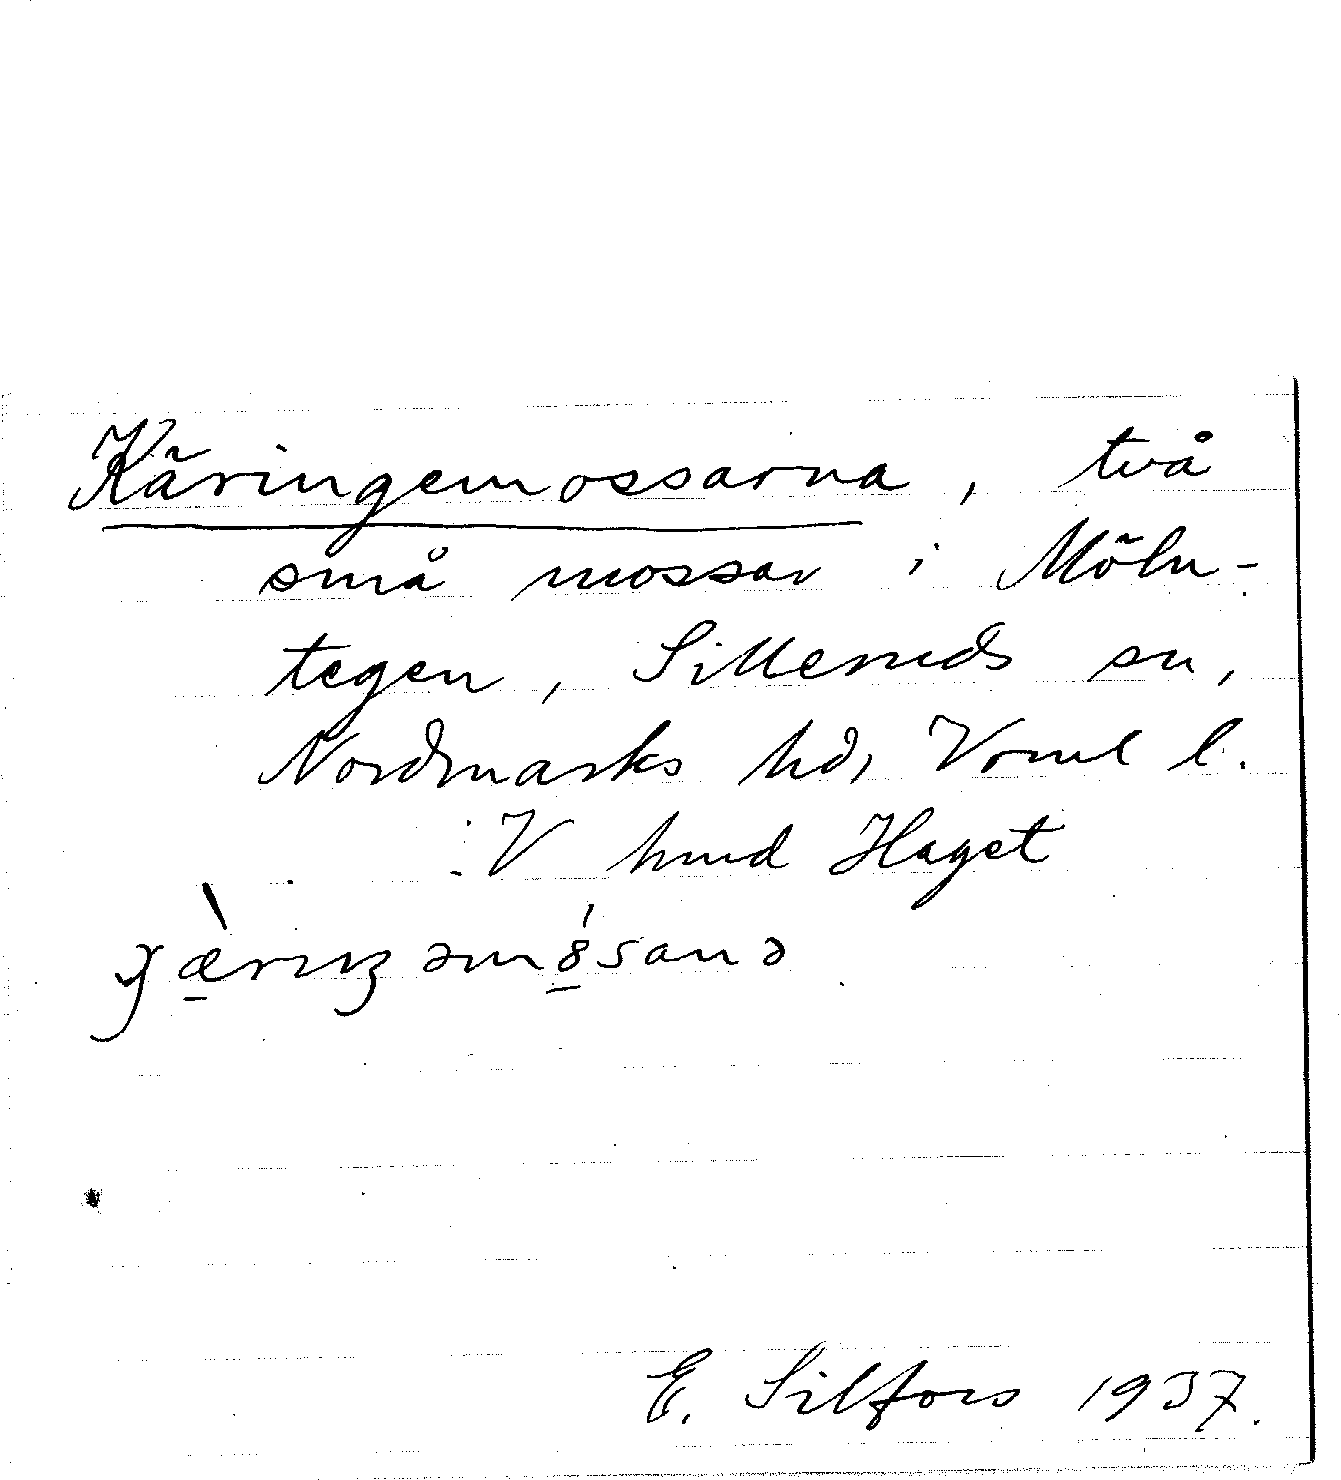 Käringemossarna, två
små mossar i Möln-
tegen, Silleruds sn,
Nordmarks hd, Vrml l.
V hmd Haget
E. Silfors 1937.